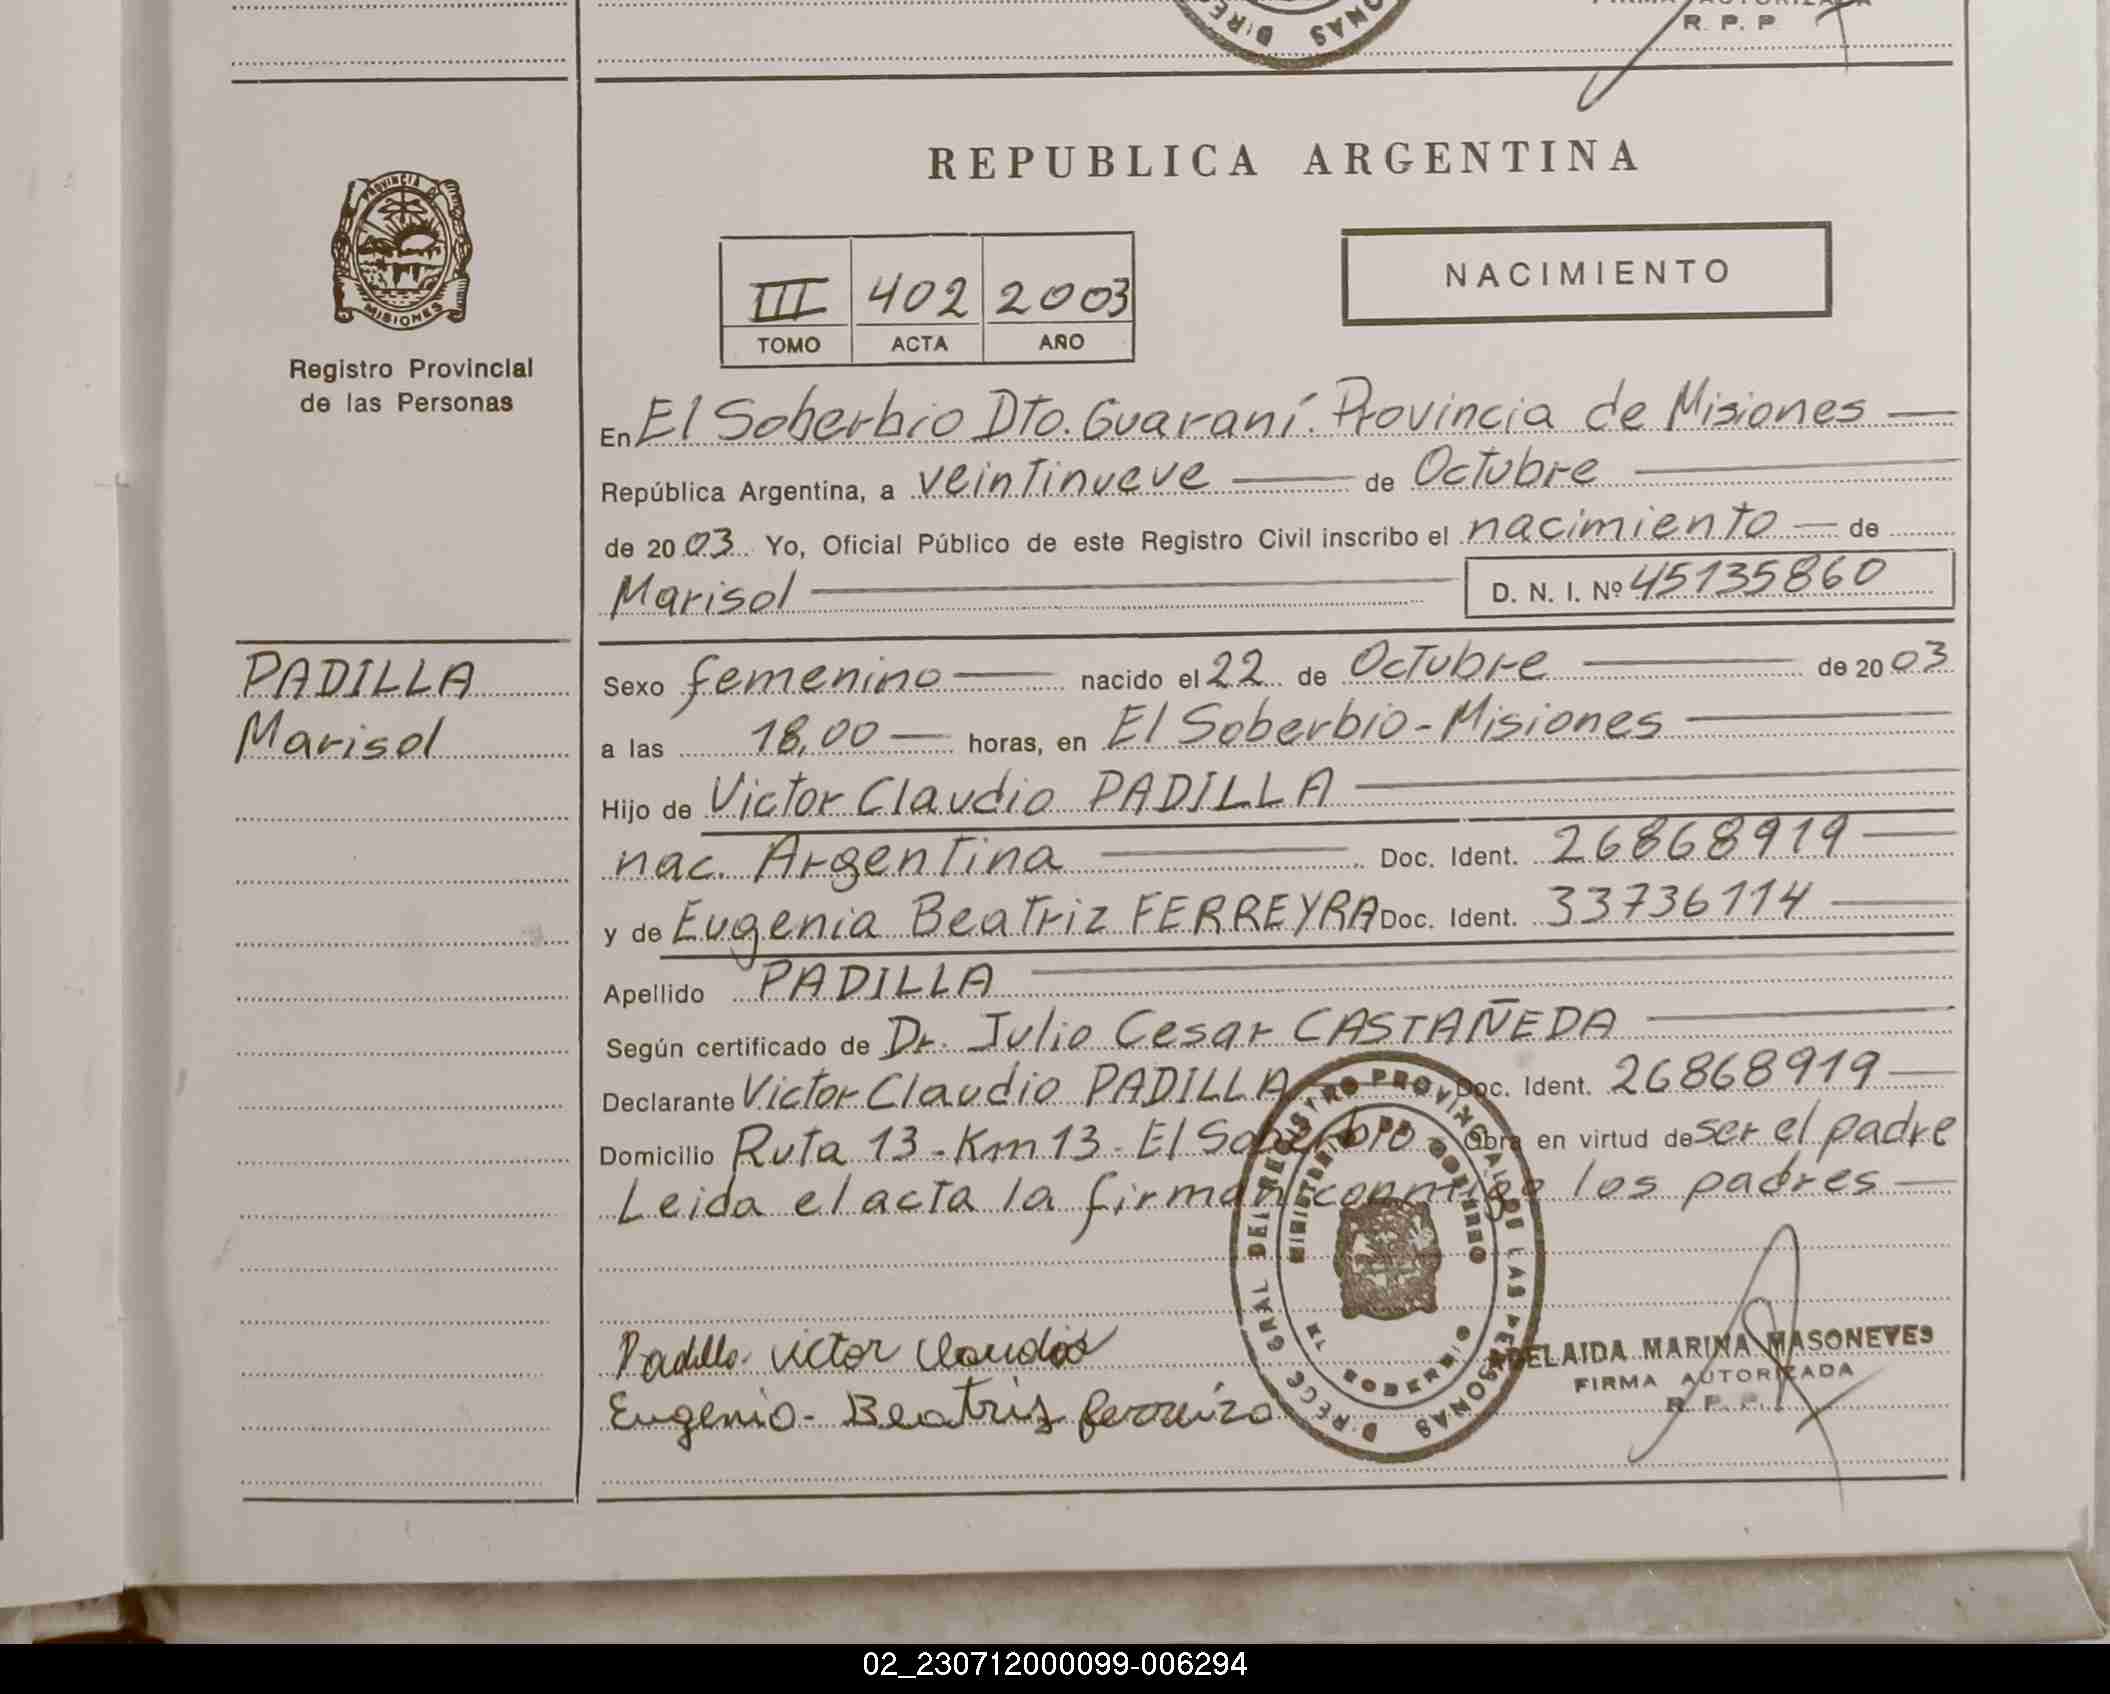 FIRMA AUTORIZADA
R. P. P.
DIRE
ONAS
REPUBLICA ARGENTINA
PROVINCIA DE
MISIONES
NACIMIENTO
III 402 2003
TOMO ACTA AÑO
Registro Provincial
de las Personas
En El Soberbio Dto. Guaraní. Provincia de Misiones
República Argentina, a veintinueve de Octubre
de 2003 Yo, Oficial Público de este Registro Civil inscribo el nacimiento de
Marisol D. N. I. Nº 45135860
PADILLA
Marisol
Sexo femenino nacido el 22 de Octubre de 2003
a las 18,00 horas, en El Soberbio - Misiones
Hijo de Victor Claudio PADILLA
nac. Argentina Doc. Ident. 26868919
y de Eugenia Beatriz FERREYRA Doc. Ident. 33736114
Apellido PADILLA
Según certificado de Dr. Julio Cesar CASTAÑEDA
Declarante Victor Claudio PADILLA Doc. Ident. 26868919
Domicilio Ruta 13 - Km 13 - El Soberbio Obra en virtud de ser el padre
Leida el acta la firman conmigo los padres
DIRECC GRAL DEL REGISTRO PROVINCIAL DE LAS PERSONAS
MINISTERIO DE GOBIERNO
MISIONES
Padilla victor Claudio
Eugenia - Beatris
ADELAIDA MARINA MASONEVES
FIRMA AUTORIZADA
R. P. P.
02_230712000099-006294